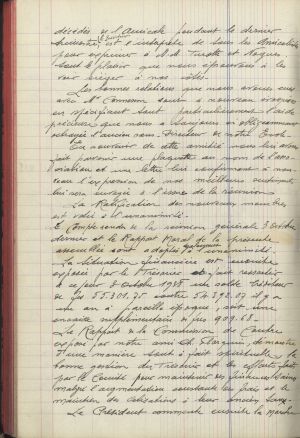 décédés de l'Amicale pendant le dernier
semestre, est l'interprète de tous les Amicalistes
pour exprimer à M.M. Turotte et Noguès
tout le plaisir que nous éprouvons à les
voir siéger à nos côtés.
Les bonnes relations que nous avons eues
avec Mr. sont à nouveau
en spécifiant tout particulièrement l'aide
précieuse que nous a toujours si obligeamment
l'ancien sous-Directeur de notre École.
En souvenir de cette amitié nous lui avons
fait parvenir une plaquette au nom de l'asso-
ciation et une lettre lui confirmant à nou-
veau l'expression de nos meilleurs sentiments,
lui sera envoyée à l'issue de la réunion.
La Ratification des nouveaux membres
est votée à l'unanimité.
Le Compte rendu de la réunion générale 3 octobre
dernier et le Rapport Moral de la présente
assemblée sont adoptés à l'unanimité.
La situation financière est ensuite
exposée par le Trésorier et fait ressortir
à ce jour 3 octobre 1958 un solde créditeur
de frs 55.301,75 contre 54.392,07 il y a
un an à pareille époque, soit une
encaisse supplémentaire de frs 909,68.
Le Rapport de la Commission de Contrôle
exposé par notre ami Ch. démontre
d'une manière tout à fait la
bonne gestion du Trésorier et les efforts faits
par le Comité pour maintenir ses
malgré l'augmentation constante des frais et le
maintien des cotisations à leur ancien taux.
Le Président commente ensuite la marche